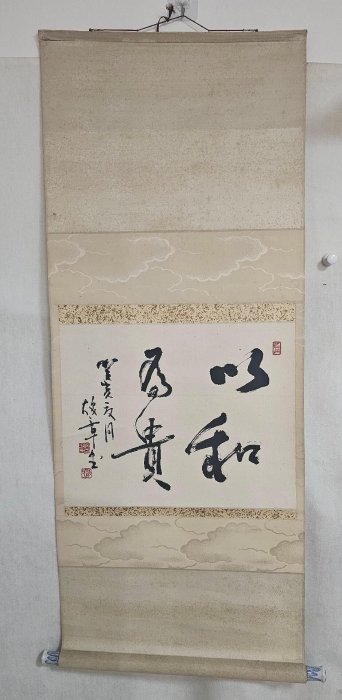 以和
為貴
癸亥夏月